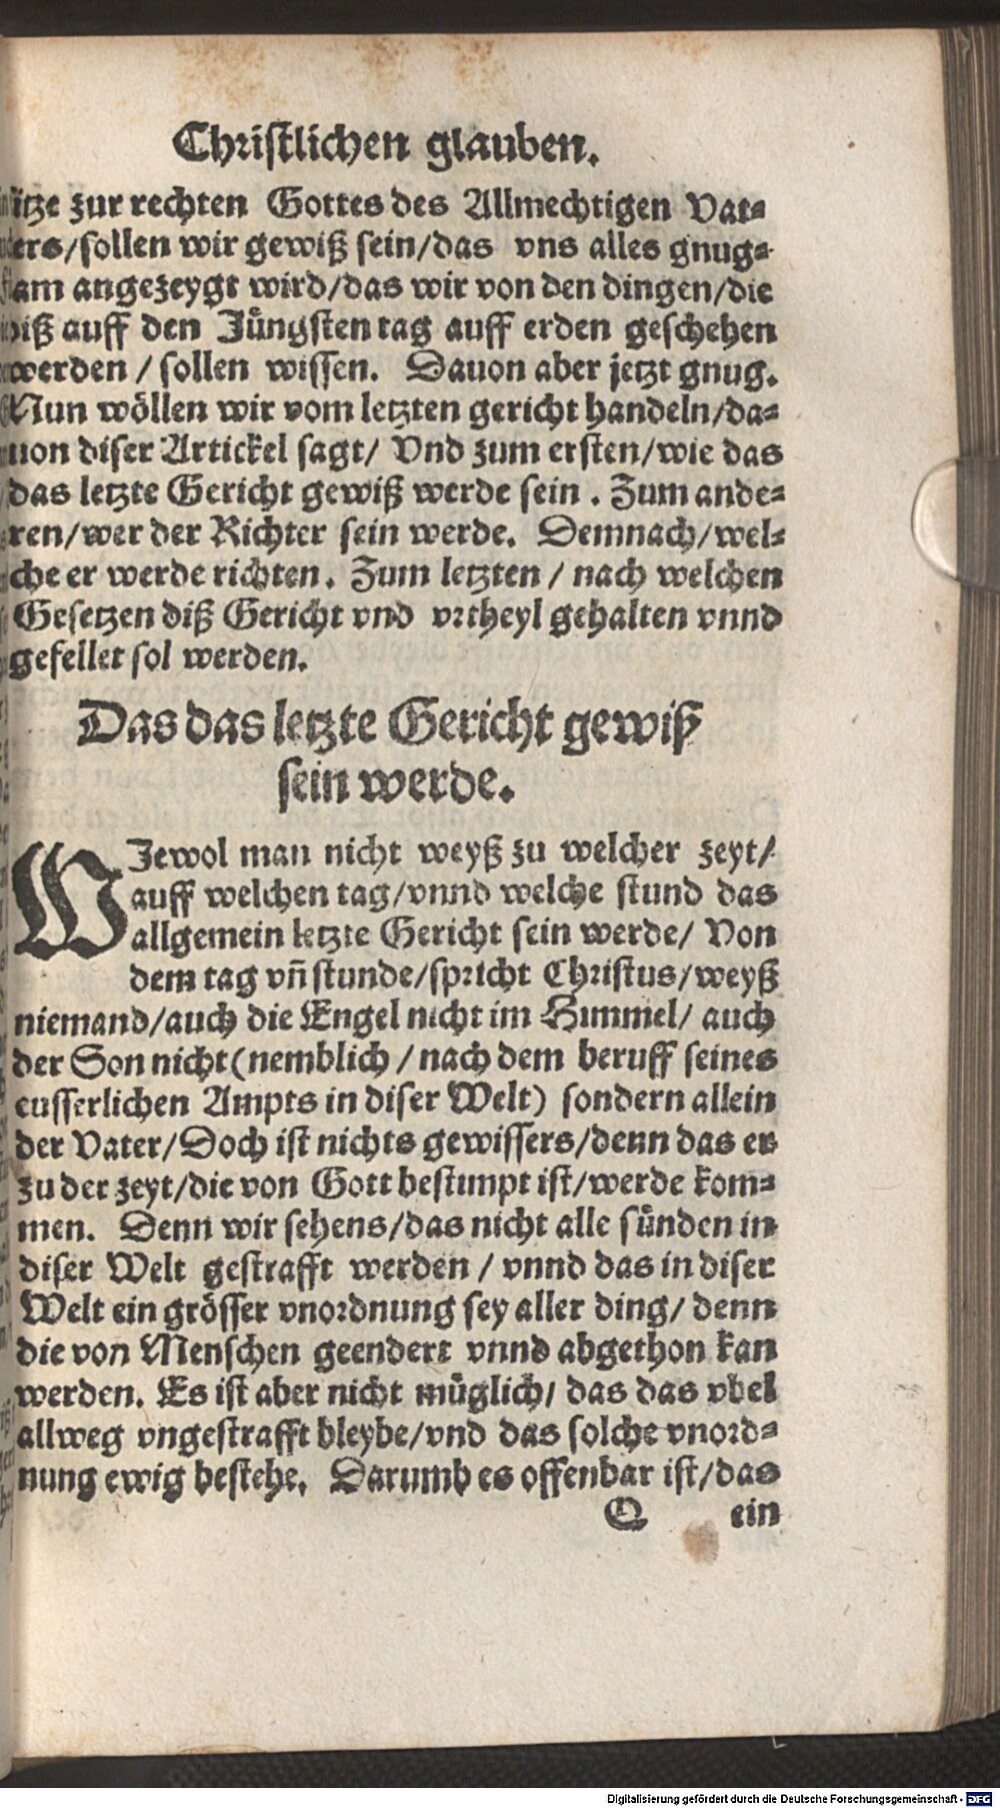 Christlichen glauben.
itze zur rechten Gottes des Allmechtigen Vat-
ers/sollen wir gewiß sein/das vns alles gnug-
am angezeygt wird/das wir von den dingen/die
biß auff den Jüngsten tag auff erden geschehen
werden / sollen wissen. Dauon aber jetzt gnug.
Nun wöllen wir vom letzten gericht handeln/da-
uon diser Artickel sagt/ Vnd zum ersten/wie das
das letzte Gericht gewiß werde sein . Zum ande-
ren/wer der Richter sein werde. Demnach/wel-
che er werde richten. Zum letzten / nach welchen
Gesetzen diß Gericht vnd vrtheyl gehalten vnnd
gefellet sol werden.
Das das letzte Gericht gewiß
sein werde.
WJewol man nicht weyß zu welcher zeyt/
auff welchen tag/vnnd welche stund das
allgemein letzte Gericht sein werde/ Von
dem tag vñ stunde/spricht Christus/weyß
niemand/auch die Engel nicht im Himmel/ auch
der Son nicht (nemblich / nach dem beruff seines
eusserlichen Ampts in diser Welt) sondern allein
der Vater/Doch ist nichts gewissers/denn das er
zu der zeyt/die von Gott bestimpt ist/werde kom-
men. Denn wir sehens/das nicht alle sünden in
diser Welt gestrafft werden / vnnd das in diser
Welt ein grösser vnordnung sey aller ding/ denn
die von Menschen geendert vnnd abgethon kan
werden. Es ist aber nicht müglich/ das das vbel
allweg vngestrafft bleybe/vnd das solche vnord-
nung ewig bestehe. Darumb es offenbar ist/das
Q ein
Digitalisierung gefördert durch die Deutsche Forschungsgemeinschaft - DFG